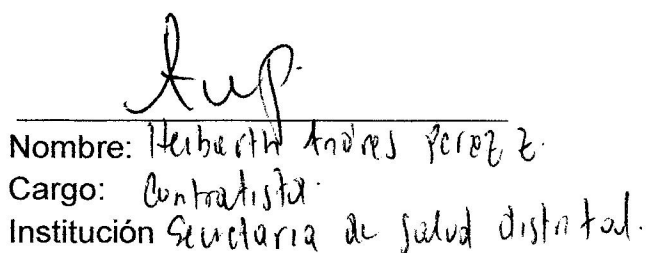 Nombre: Heiberth Andres Perez Z.
Cargo: Contratista.
Institución Secretaria de salud distrital.